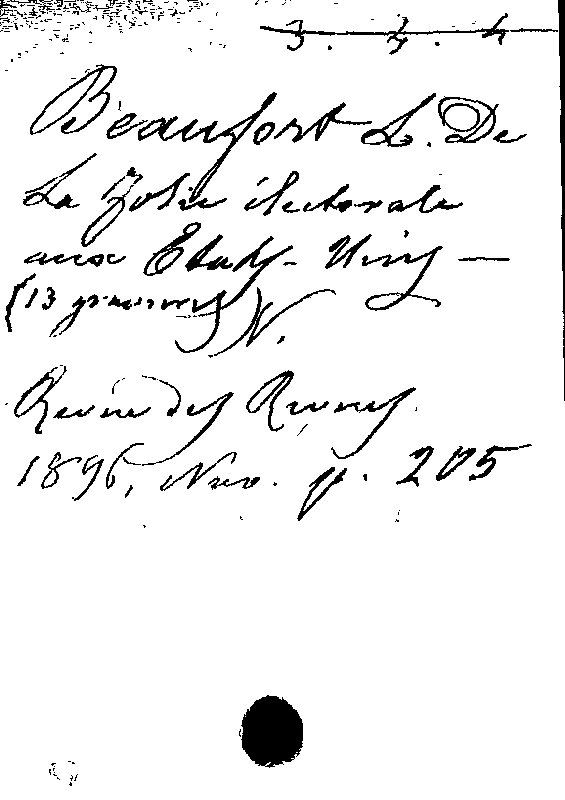 3. 4. 4
Beaufort L. De
La Folie électorale
aux Etats-Unis —
(13 gravures) N.
Revue des Revues.
1896, Nov. p. 205